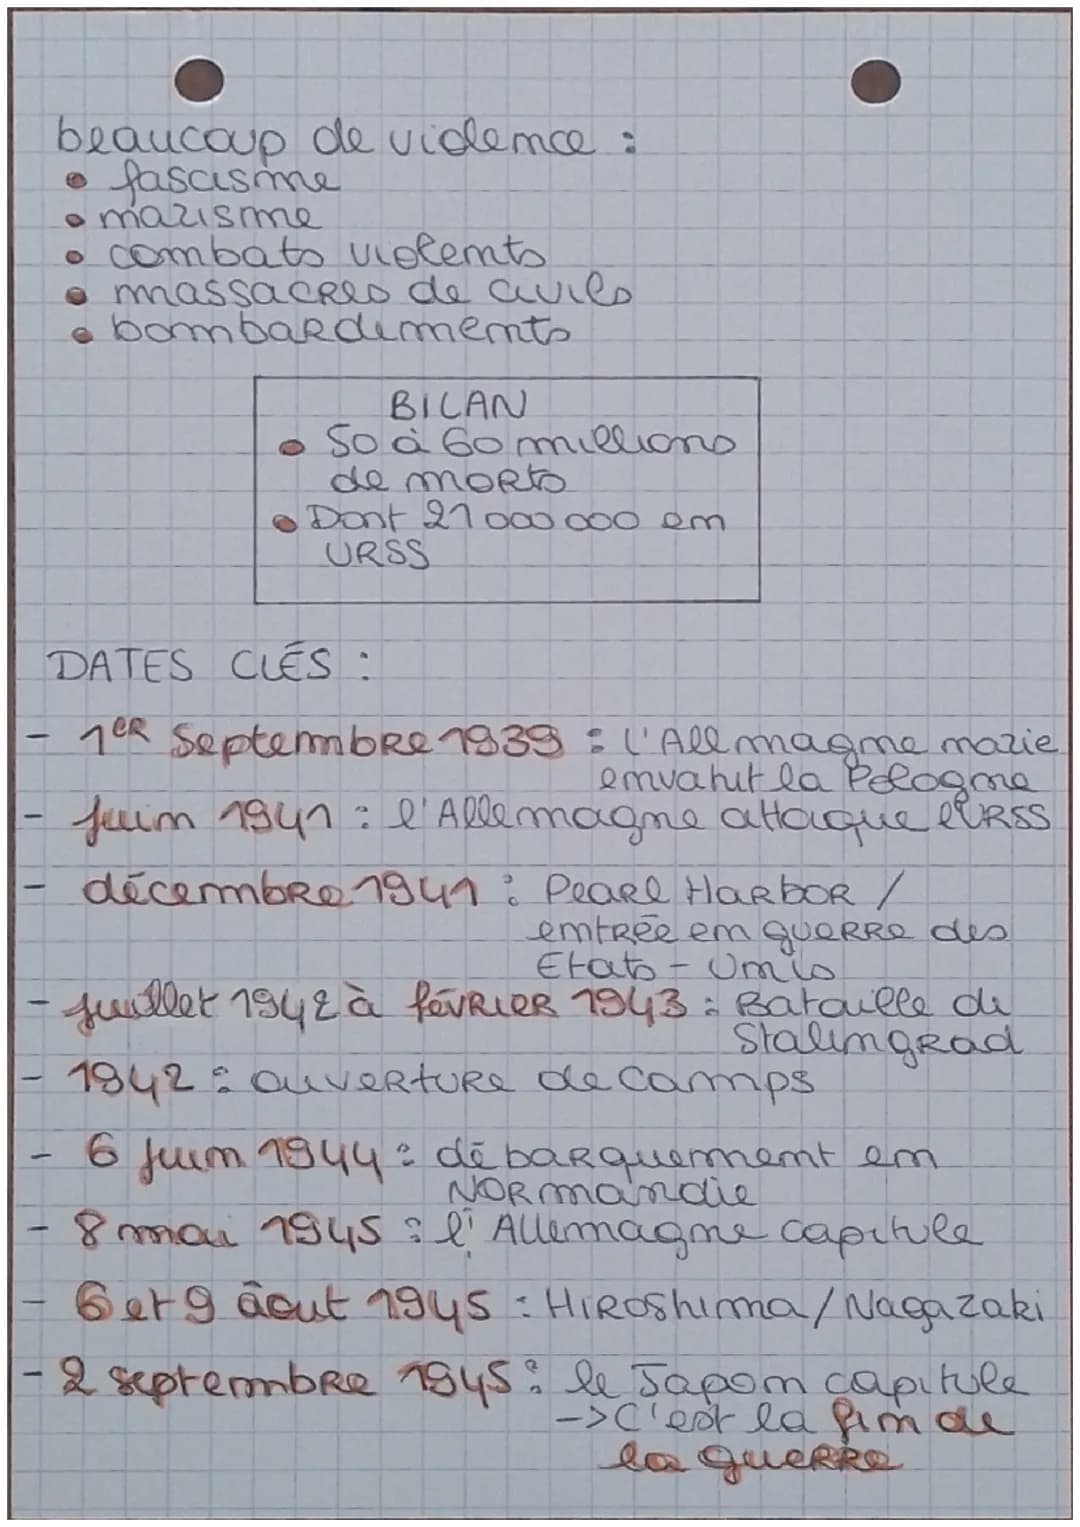 beaucoup de violence :
• fascisme
• nazisme
• combats violents
• massacres de civils
• bombardements
BILAN
• 50 à 60 millions
de morts
• Dont 21 000 000 en
URSS
DATES CLÉS :
- 1er Septembre 1939 : l'Allemagne nazie
envahit la Pologne
- Juin 1941 : l'Allemagne attaque l'URSS
- décembre 1941 : Pearl Harbor /
entrée en guerre des
Etats-Unis
- Juillet 1942 à février 1943 : Bataille de
Stalingrad
- 1942 : ouverture de camps
- 6 Juin 1944 : débarquement en
Normandie
- 8 mai 1945 : l'Allemagne capitule
- 6 et 9 âout 1945 : Hiroshima/Nagazaki
- 2 septembre 1945 : le Japon capitule
-> C'est la fin de
la guerre